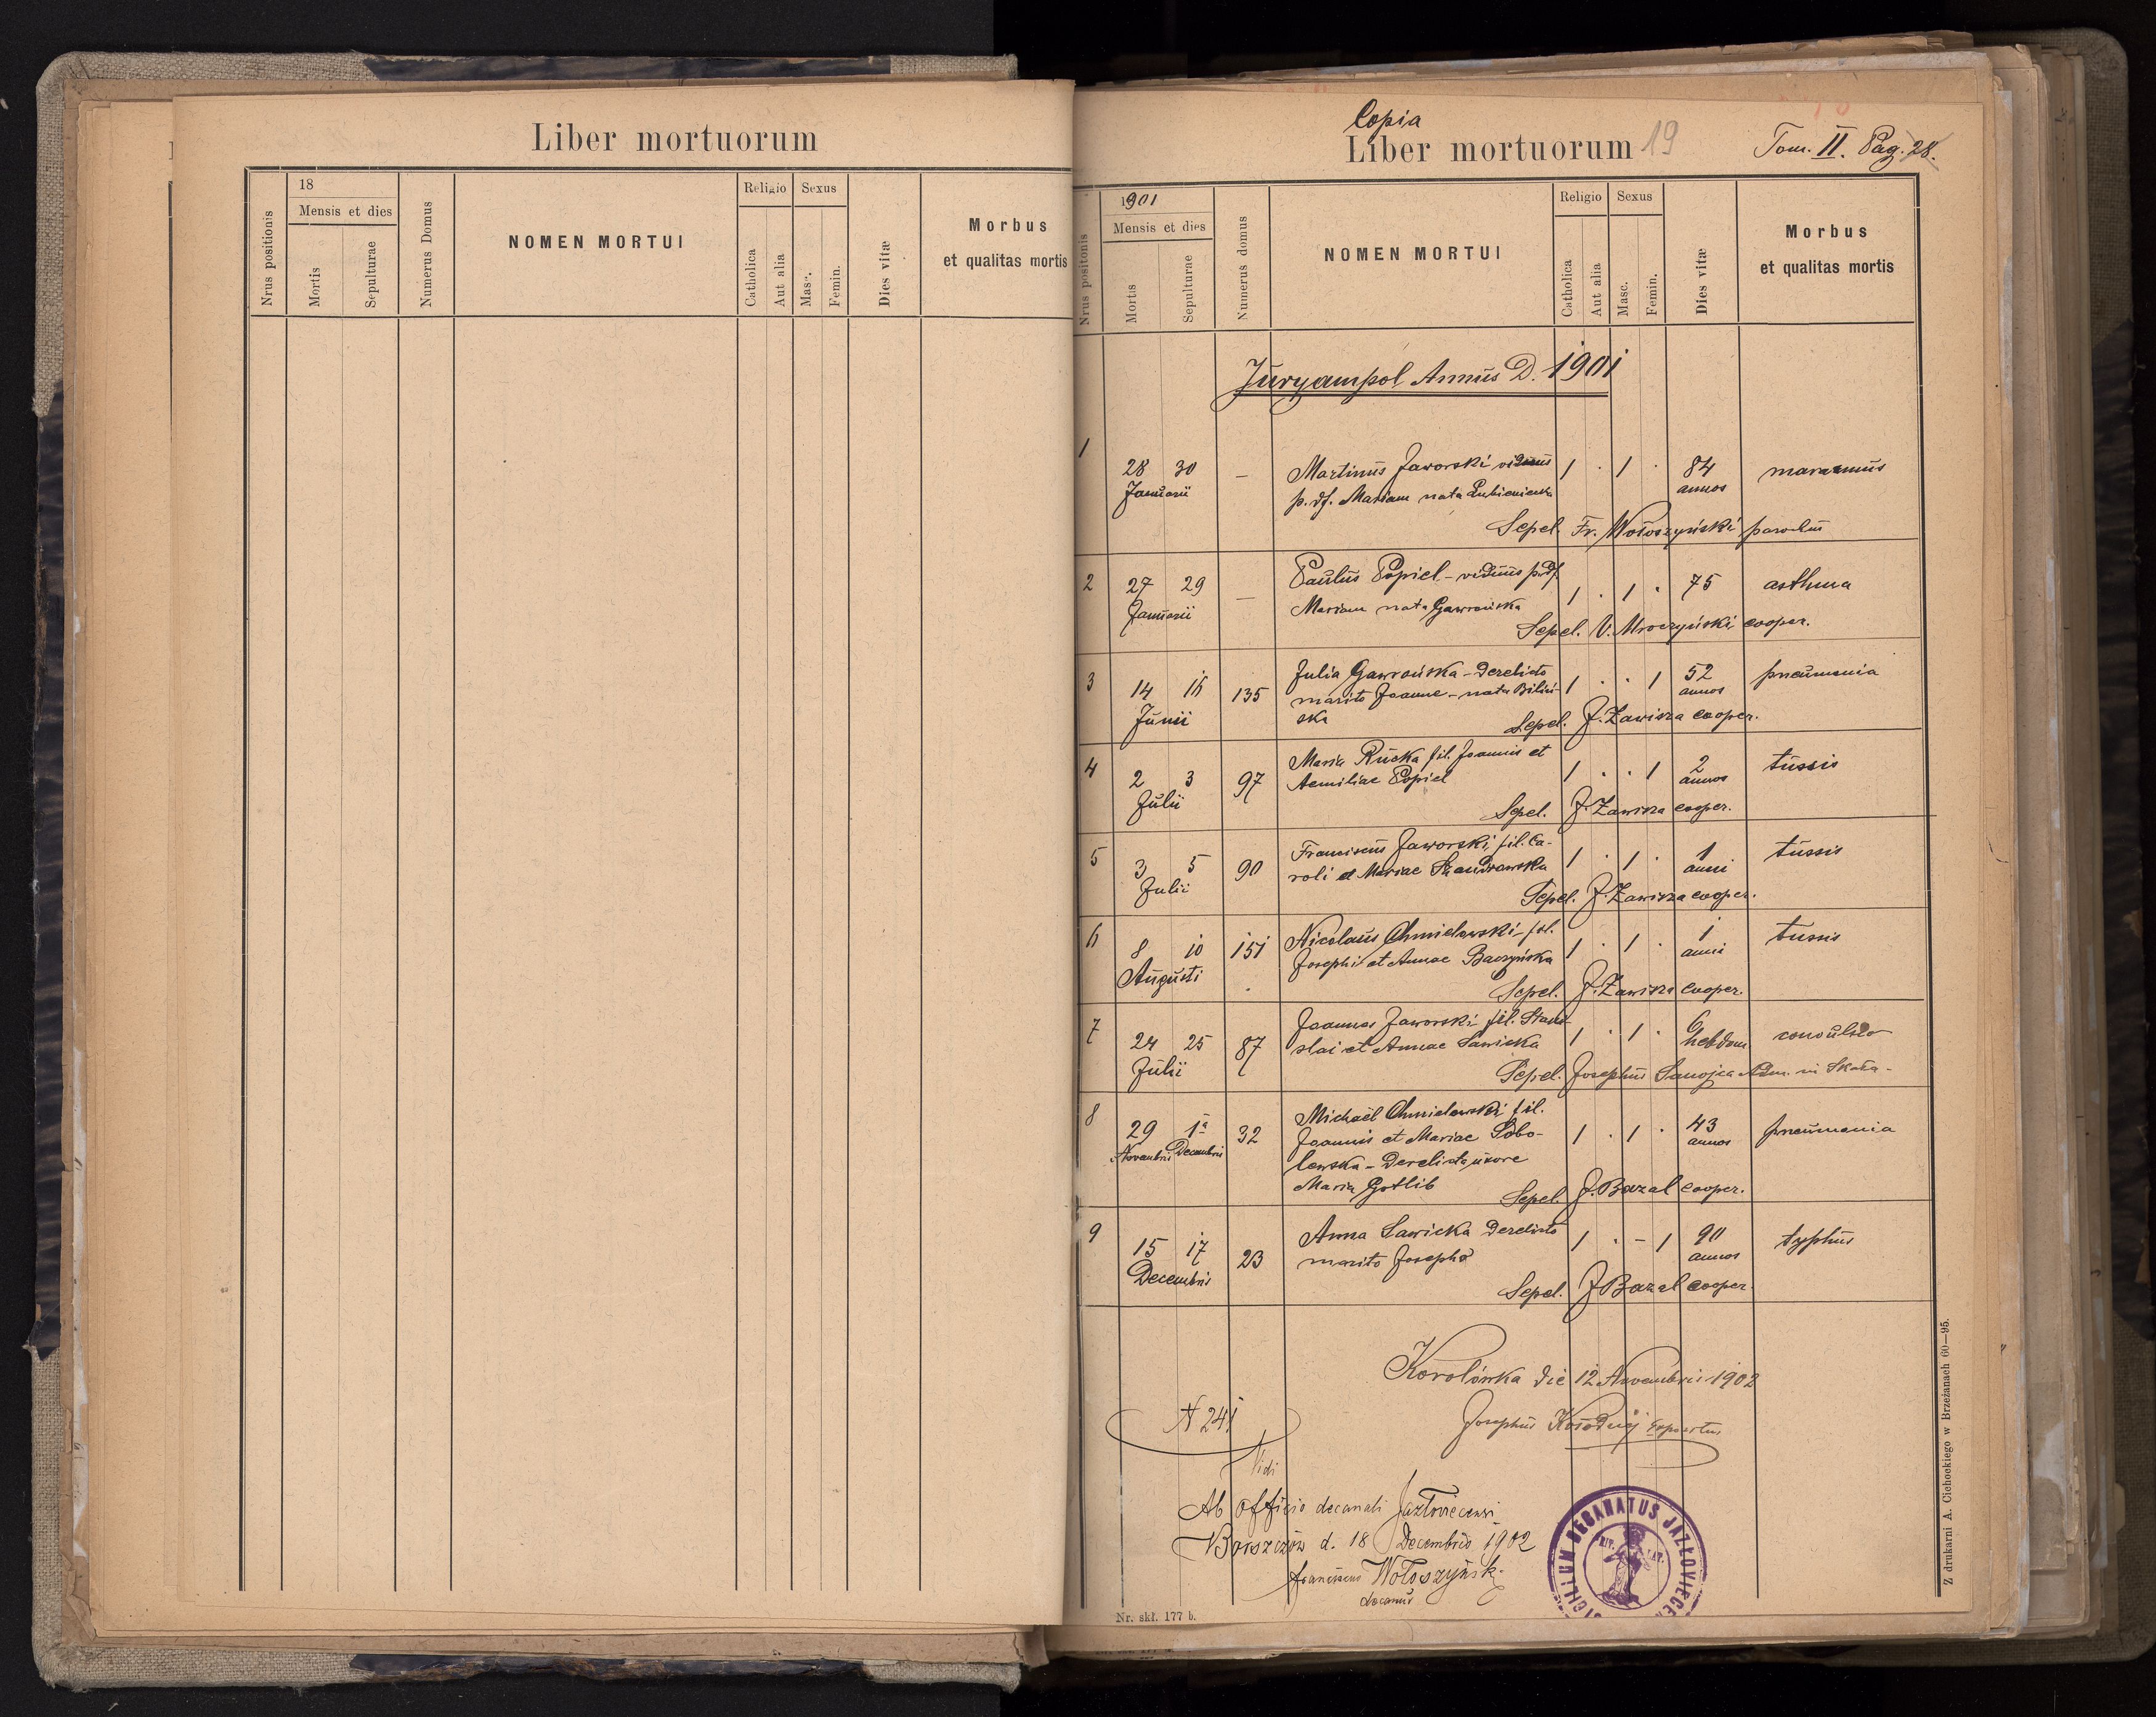 Liber mortuorum
Nrus positionis
18
Mensis et dies
Mortis
Sepulturae
Numerus Domus
NOMEN MORTUI
Religio
Catholica
Aut alia
Sexus
Masc.
Femin.
Dies vitæ
Morbus
et qualitas mortis
Copia
Liber mortuorum 19
Tom. II. Pag. 28.
Nrus positonis
1901
Mensis et dies
Mortis
Sepulturae
Numerus domus
NOMEN MORTUI
Religio
Catholica
Aut alia
Sexus
Masc.
Femin.
Dies vitæ
Morbus
et qualitas mortis
Juryampol Annus D. 1901
1
28 30 — Martinus Jaworski viduus 1 . 1 . 84 marasmus
Januarii p. df. Mariam nata Lubieniecka annos
Sepel. Fr. Wołoszyński parochus
2 27 29 — Paulus Popiel - viduus p. df. 1 . 1 . 75 asthma
Januarii Mariam nata Gawrońska
Sepel. V. Mroczyński cooper.
3 14 16 135 Julia Gawrońska - derelicto 1 . . 1 52 pneumonia
Junii marito Joanne - nata Biliń- annos
ska
Sepel. J. Zawisza cooper.
4 2 3 97 Maria Rucka fil. Joannis et 1 . . 1 2 tussis
Julii Aemiliae Popiel annos
Sepel. J. Zawisza cooper.
5 3 5 90 Franciscus Jaworski, fil. Ca- 1 . 1 . 1 tussis
Julii roli et Mariae anni
Sepel. J. Zawisza cooper.
6 8 10 151 Nicolaus Chmielowski - fil. 1 . 1 . 1 tussis
Augusti Josephi et Annae Baczyńska anni
Sepel. J. Zawisza cooper.
7 24 25 87 Joannes Jaworski fil. Stani- 1 . 1 . 6 convulsio
Julii slai et Annae Sawicka hebdom
Sepel. Josephus Sanojca Adm. in Skała -
8 29 1a 32 Michaël Chmielowski fil. 1 . 1 . 43 pneumonia
Novembris Decembris Joannis et Mariae Sobo- annos
lewska - derelicta uxore
Maria Gotlib
Sepel. J. Bazal cooper.
9 15 17 23 Anna Sawicka derelicto 1 . - 1 90 typhus
Decembris marito Josepho annos
Sepel. J. Bazal cooper.
Korolówka die 12 Novembris 1902
N 241
Josephus Kołodziej Expositus
Vidi
Ab officio decanali Jazłoviecensi
Borszczów d. 18 Decembris 1902
Franciscus Wołoszyński
decanus
SIGILLUM DECANATUS JAZŁOVIECEN
RIT. LAT.
Nr. skł. 177 b.
Z drukarni A. Cichockiego w Brzeżanach 60—95.